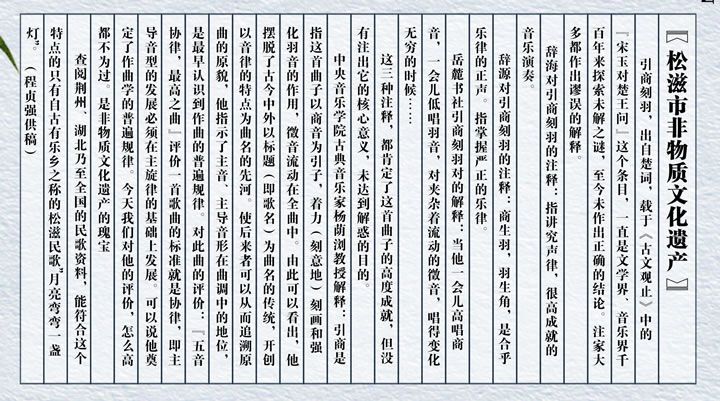 《松滋市非物质文化遗产》
引商刻羽，出自楚词，载于《古文观止》中的
『宋玉对楚王问』这个条目，一直是文学界、音乐界千
百年来探索未解之谜，至今未作出正确的结论。注家大
多都作出谬误的解释。
辞海对引商刻羽的注释：指讲究声律，很高成就的
音乐演奏。
辞源对引商刻羽的注释：商生羽，羽生角，是合乎
乐律的正声。指掌握严正的乐律。
岳麓书社引商刻羽对的解释：当他一会儿高唱商
音，一会儿低唱羽音，对夹杂着流动的徵音，唱得变化
无穷的时候……
这三种注释，都肯定了这首曲子的高度成就，但没
有注出它的核心意义，未达到解惑的目的。
中央音乐学院古典音乐家杨荫浏教授解释：引商是
指这首曲子以商音为引子，着力（刻意地）刻画和强
化羽音的作用，徵音流动在全曲中。由此可以看出，他
摆脱了古今中外以标题（即歌名）为曲名的传统，开创
以音律的特点为曲名的先河。使后来者可以从而追溯原
曲的原貌，他指示了主音、主导音形在曲调中的地位，
是最早认识到作曲的普遍规律。对此曲的评价：『五音
协律，最高之曲』评价一首歌曲的标准就是协律，即主
导音型的发展必须在主旋律的基础上发展。可以说他奠
定了作曲学的普遍规律。今天我们对他的评价，怎么高
都不为过。是非物质文化遗产的瑰宝
查阅荆州、湖北乃至全国的民歌资料，能符合这个
特点的只有自古有乐乡之称的松滋民歌“月亮弯弯一盏
灯”。（程贞强供稿）